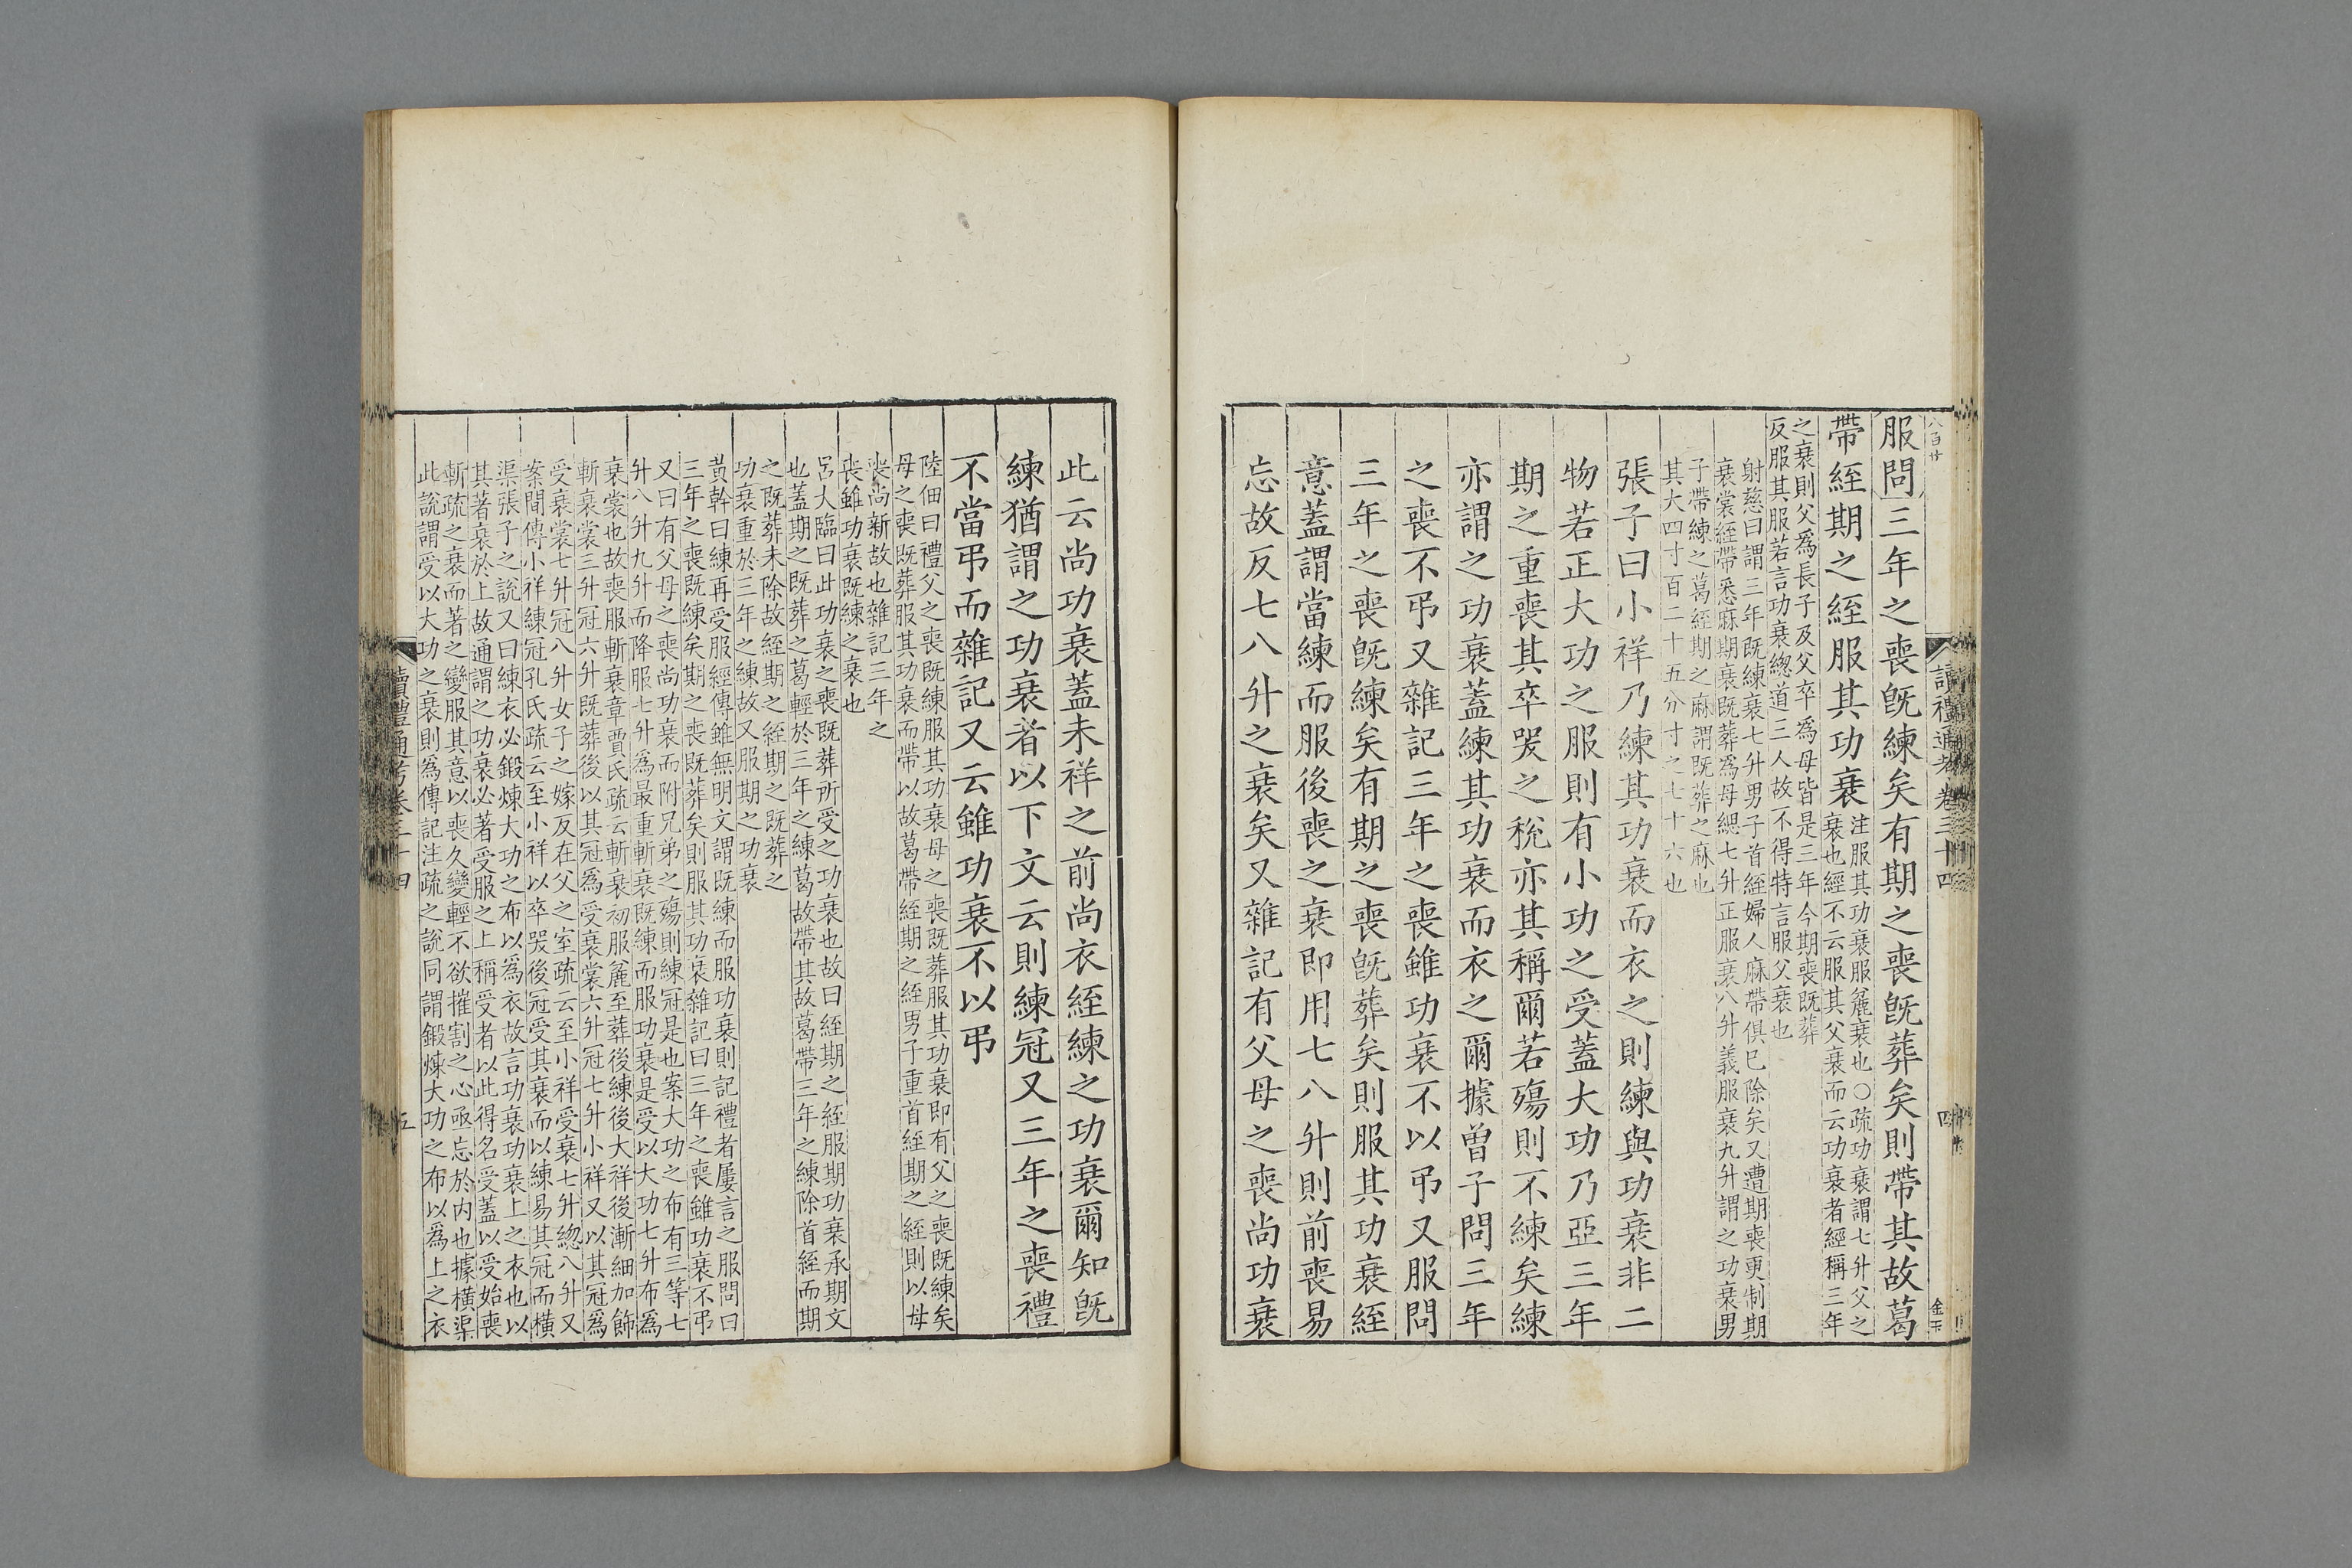 服問三年之喪旣練矣有期之喪旣葬矣則帶其故葛
帶絰期之絰服其功衰
注服其功衰服麤衰也○疏功衰謂七升父之
衰也經不云服其父衰而云功衰者經稱三年
之衰則父爲長子及父卒爲母皆是三年今期喪既葬
反服其服若言功衰總道三人故不得特言服父衰也
射慈曰謂三年既練衰七升男子首絰婦人麻帶俱已除矣又遭期喪更制期
衰裳絰帶悉麻期衰既葬爲母緦七升正服衰八升義服衰九升謂之功衰男
子帶練之葛絰期之麻謂既葬之麻也
其大四寸百二十五分寸之七十六也
張子曰小祥乃練其功衰而衣之則練與功衰非二
物若正大功之服則有小功之受蓋大功乃亞三年
期之重喪其卒哭之稅亦其稱爾若殤則不練矣練
亦謂之功衰蓋練其功衰而衣之爾據曾子問三年
之喪不弔又雜記三年之喪雖功衰不以弔又服問
三年之喪旣練矣有期之喪旣葬矣則服其功衰絰
意蓋謂當練而服後喪之衰即用七八升則前喪易
忘故反七八升之衰矣又雜記有父母之喪尚功衰
讀禮通考卷三十四
四
此云尚功衰蓋未祥之前尚衣絰練之功衰爾知旣
練猶謂之功衰者以下文云則練冠又三年之喪禮
不當弔而雜記又云雖功衰不以弔
陸佃曰禮父之喪既練服其功衰母之喪既葬服其功衰即有父之喪既練矣
母之喪既葬服其功衰而帶以故葛帶絰期之絰男子重首絰期之絰則以母
喪尚新故也雜記三年之
喪雖功衰既練之衰也
呂大臨曰此功衰之喪既葬所受之功衰也故曰絰期之絰服期功衰承期文
也蓋期之既葬之葛輕於三年之練葛故帶其故葛帶三年之練除首絰而期
之既葬未除故絰期之絰期之既葬之
功衰重於三年之練故又服期之功衰
黃榦曰練再受服經傳雖無明文謂既練而服功衰則記禮者屢言之服問曰
三年之喪既練矣期之喪既葬矣則服其功衰雜記曰三年之喪雖功衰不弔
又曰有父母之喪尚功衰而附兄弟之殤則練冠是也案大功之布有三等七
升八升九升而降服七升爲最重斬衰既練而服功衰是受以大功七升布爲
衰裳也故喪服斬衰章賈氏疏云斬衰初服麤至葬後練後大祥後漸細加飾
斬衰裳三升冠六升既葬後以其冠爲受衰裳六升冠七升小祥又以其冠爲
受衰裳七升冠八升女子之嫁反在父之室疏云至小祥受衰七升總八升又
案間傳小祥練冠孔氏疏云至小祥以卒哭後冠受其衰而以練易其冠而橫
渠張子之說又曰練衣必鍛煉大功之布以爲衣故言功衰功衰上之衣也以
其著衰於上故通謂之功衰必著受服之上稱受者以此得名受蓋以受始喪
斬疏之衰而著之變服其意以喪久變輕不欲摧割之心亟忘於内也據橫渠
此說謂受以大功之衰則爲傳記注疏之說同謂鍛煉大功之布以爲上之衣
讀禮通考卷三十四
五